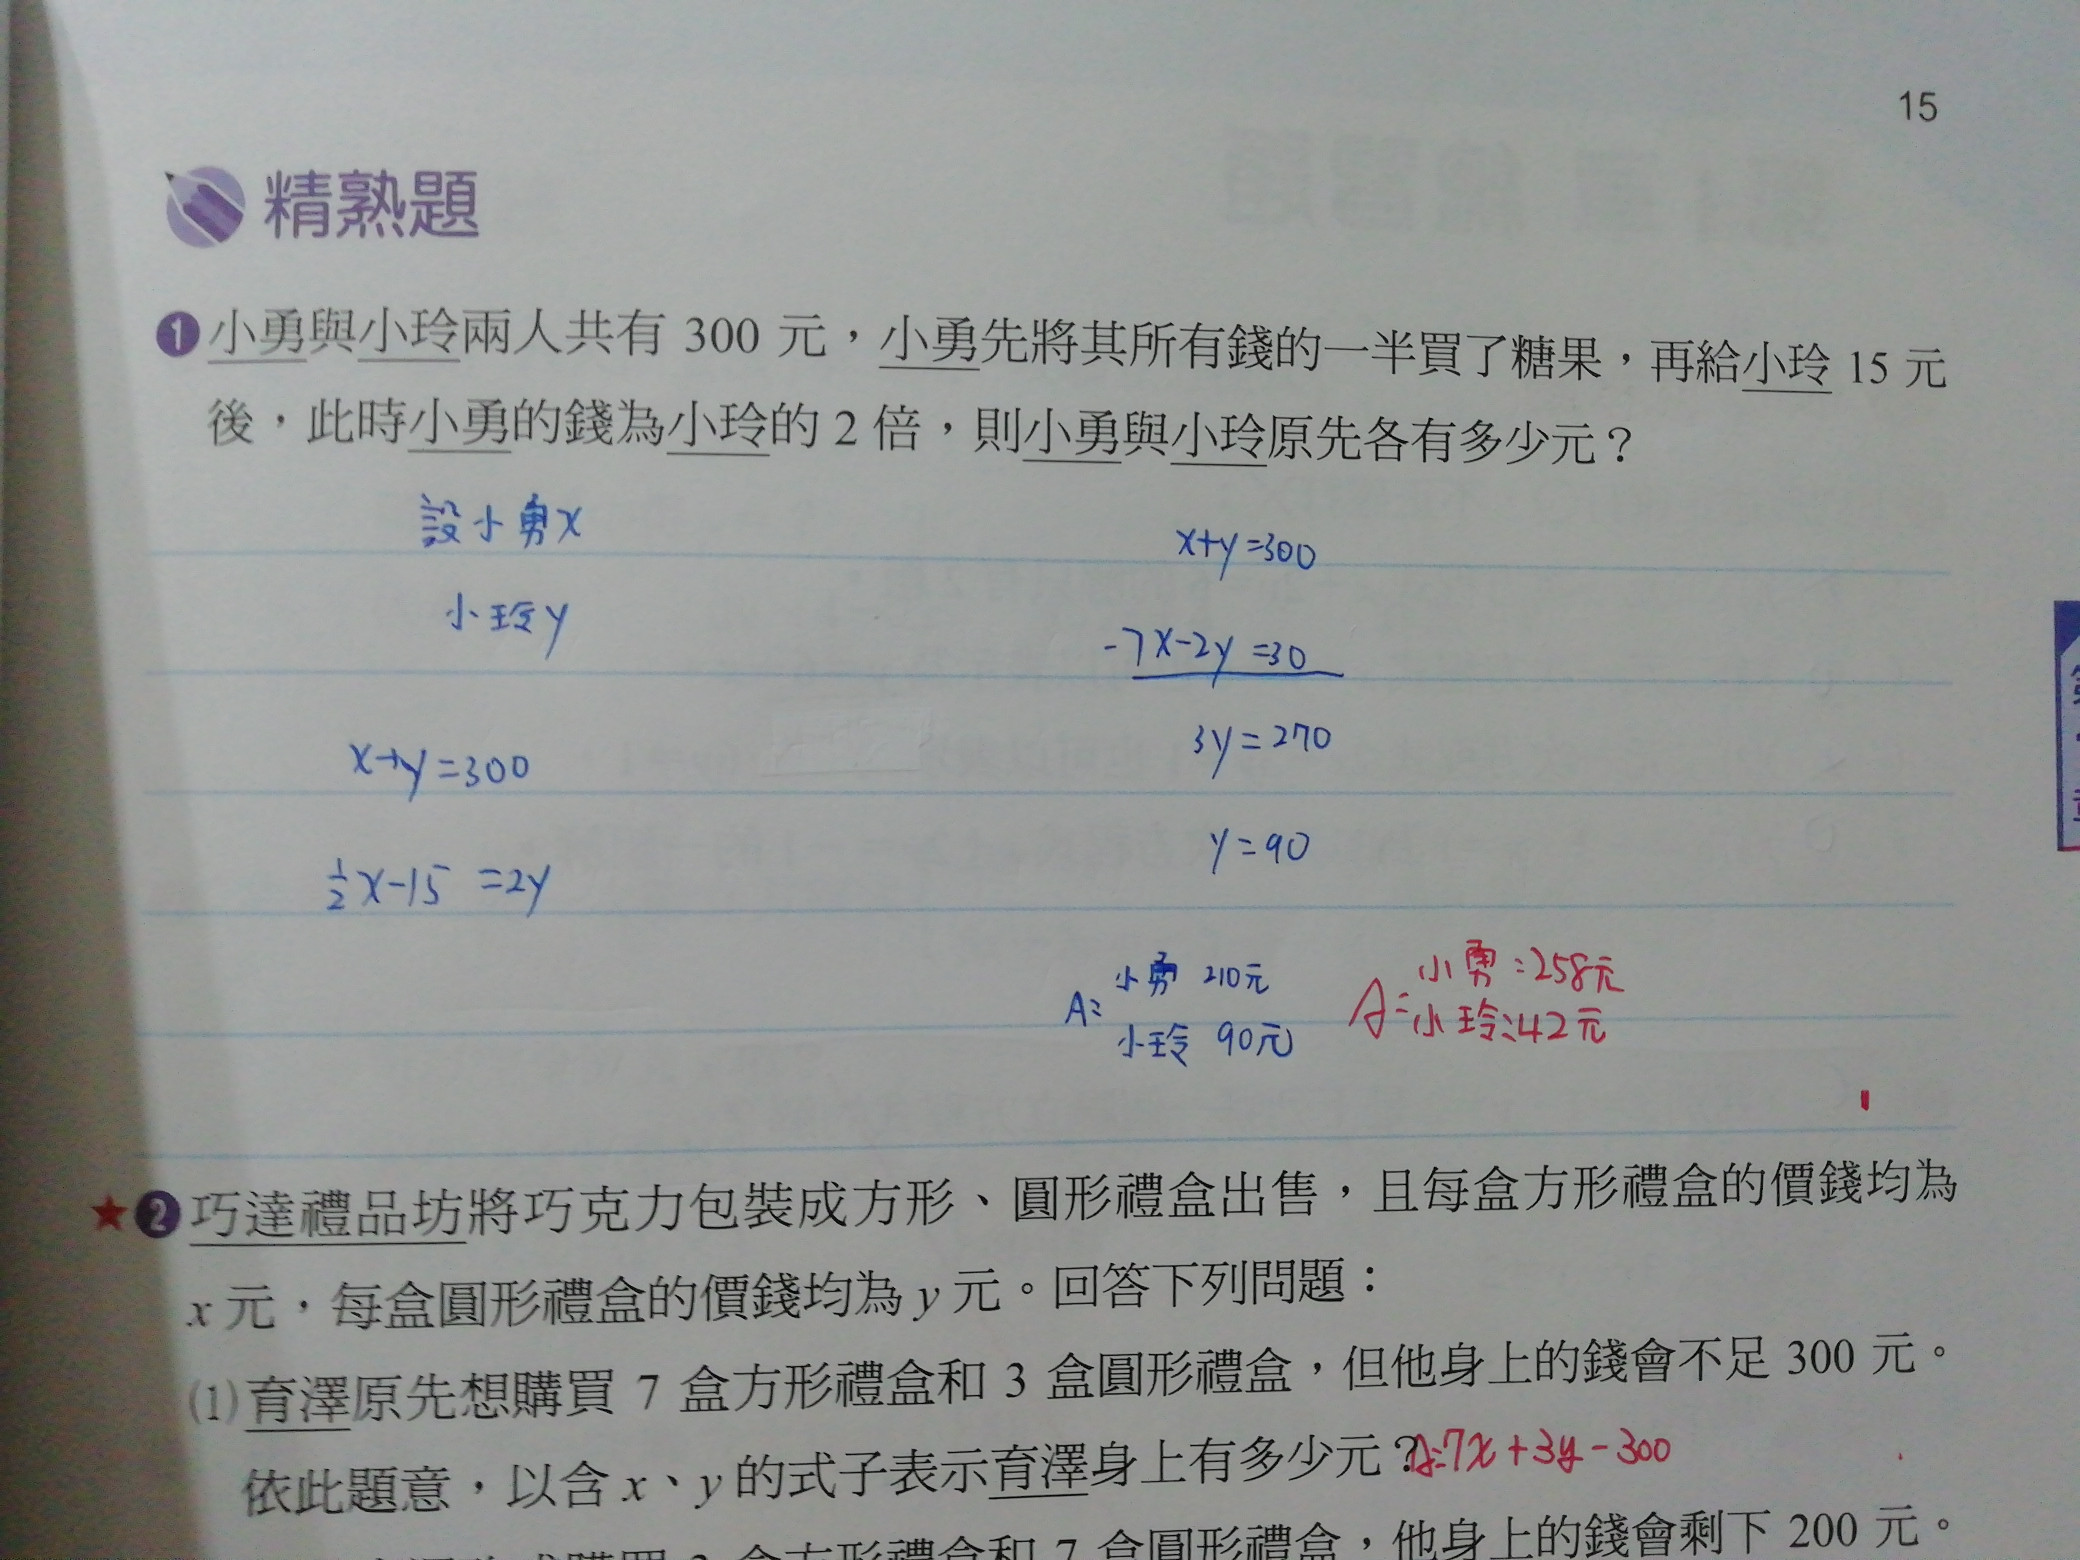 15
精熟題
1 小勇與小玲兩人共有 300 元，小勇先將其所有錢的一半買了糖果，再給小玲 15 元
後，此時小勇的錢為小玲的 2 倍，則小勇與小玲原先各有多少元？
設小勇x
小玲y
x+y=300
½x-15 =2y
x+y=300
-7x-2y =30
3y=270
y=90
A: 小勇 210元
小玲 90元
A: 小勇:258元
小玲:42元
★2 巧達禮品坊將巧克力包裝成方形、圓形禮盒出售，且每盒方形禮盒的價錢均為
x 元，每盒圓形禮盒的價錢均為 y 元。回答下列問題：
(1) 育澤原先想購買 7 盒方形禮盒和 3 盒圓形禮盒，但他身上的錢會不足 300 元。
依此題意，以含 x、y 的式子表示育澤身上有多少元？ A:7x+3y-300
購買 3 盒方形禮盒和 7 盒圓形禮盒，他身上的錢會剩下 200 元。